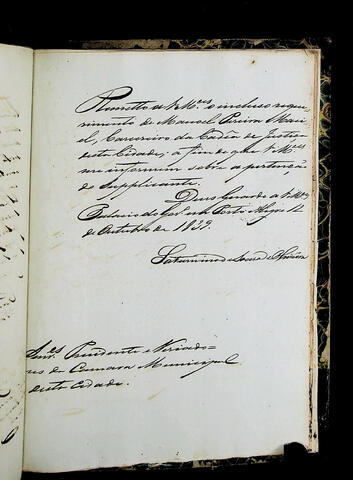 Remetto a V. M.ces o incluso reque-
rimento de Manoel Pereira Maci-
el, Carcereiro da Cadêa de Justiça
desta Cidade, a fim de que V. M.ces
me informem sobre a pertenção
do Supplicante.
Deos Guarde a V. M.ces
Palacio do Gov. em Porto Alegre 12
de Outubro de 1839.
Saturnino de Souza e Oliveira
Snr.es Prezidente e Veriado-
res da Camara Municipal
desta Cidade.